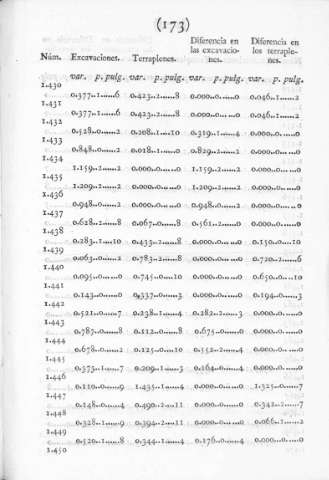 (173)
Diferencia en Diferencia en
las excavacio- los terraple-
Núm. Excavaciones. Terraplenes. nes. nes.
var. p. pulg. var. p. pulg. var. p. pulg. var. p. pulg.
1.430
0.377..1......6 0.423..2......8 0.000..0......0 0.046..1......2
1.431
0.377..1......6 0.423..2......8 0.000..0......0 0.046..1......2
1.432
0.528..0......2 0.208..1....10 0.319..1......4 0.000..0......0
1.433
0.848..0......2 0.018..1......0 0.829..2......2 0.000..0......0
1.434
1.159..2......2 0.000..0......0 1.159..2......2 0.000..0......0
1.435
1.209..2......2 0.000..0......0 1.209..2......2 0.000..0......0
1.436
0.948..0......2 0.000..0......0 0.948..0......2 0.000..0......0
1.437
0.628..2......8 0.067..0......8 0.561..2......0 0.000..0......0
1.438
0.283..1....10 0.433..2......8 0.000..0......0 0.150..0....10
1.439
0.063..0......2 0.783..2......8 0.000..0......0 0.720..2......6
1.440
0.095..0......0 0.745..0....10 0.000..0......0 0.650..0....10
1.441
0.143..0......0 0.337..0......3 0.000..0......0 0.194..0......3
1.442
0.521..0......7 0.238..1......4 0.282..2......3 0.000..0......0
1.443
0.787..0......8 0.112..0......8 0.675..0......0 0.000..0......0
1.444
0.678..0......2 0.125..0....10 0.552..2......4 0.000..0......0
1.445
0.373..1......7 0.209..1......3 0.164..0......4 0.000..0......0
1.446
0.110..0......9 1.435..1......4 0.000..0......0 1.325..0......7
1.447
0.148..0......4 0.490..2....11 0.000..0......0 0.342..2......7
1.448
0.328..1......9 0.394..2....11 0.000..0......0 0.066..1......2
1.449
0.520..1......8 0.344..1......4 0.176..0......4 0.000..0......0
1.450